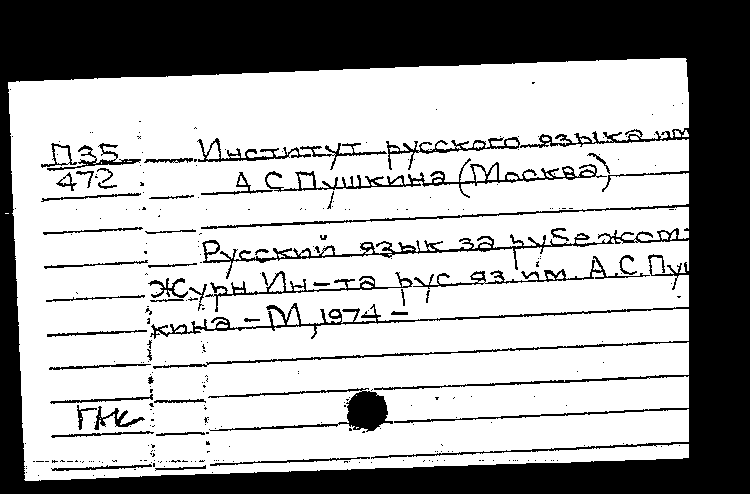 П35 Институт русского языка им
472 А.С.Пушкина (Москва)
Русский язык за рубежом:
Журн. Ин-та рус яз. им. А.С.Пуш
кина. – М, 1974 –